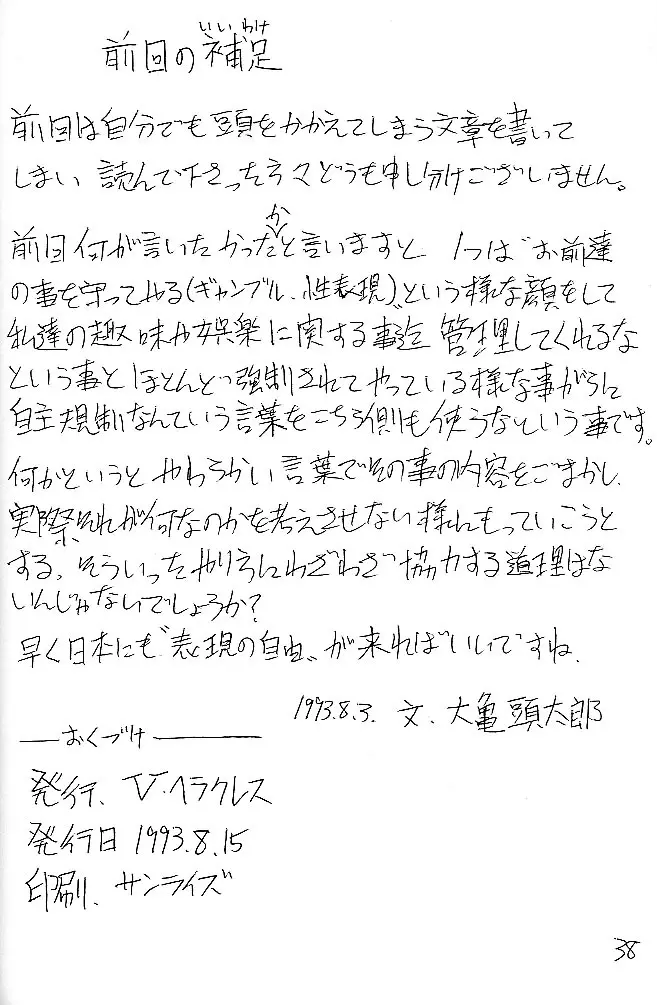 いいわけ
前回の補足
前回は自分でも頭をかかえてしまう文章を書いて
しまい 読んで下さった方々どうも申し分けございません。
か
前回何が言いたかったと言いますと、1つは“お前達
の事を守ってやる(ギャンブル、性表現)”という様な顔をして
私達の趣味や娯楽に関する事迄 管理してくれるな
という事と ほとんど強制されてやっている様な事がらに
自主規制なんていう言葉をこちら側も使うなという事です。
何かというと やわらかい言葉でその事の内容をごまかし、
実際それが何なのかを考えさせない様にもっていこうと
する、そういったやり方にわざわざ協力する道理はな
いんじゃないでしょうか?
早く日本にも“表現の自由”が来ればいいですね.
1993.8.3. 文、大亀頭太郎
おくづけ
発行、V・ヘラクレス
発行日 1993.8.15
印刷、サンライズ
38